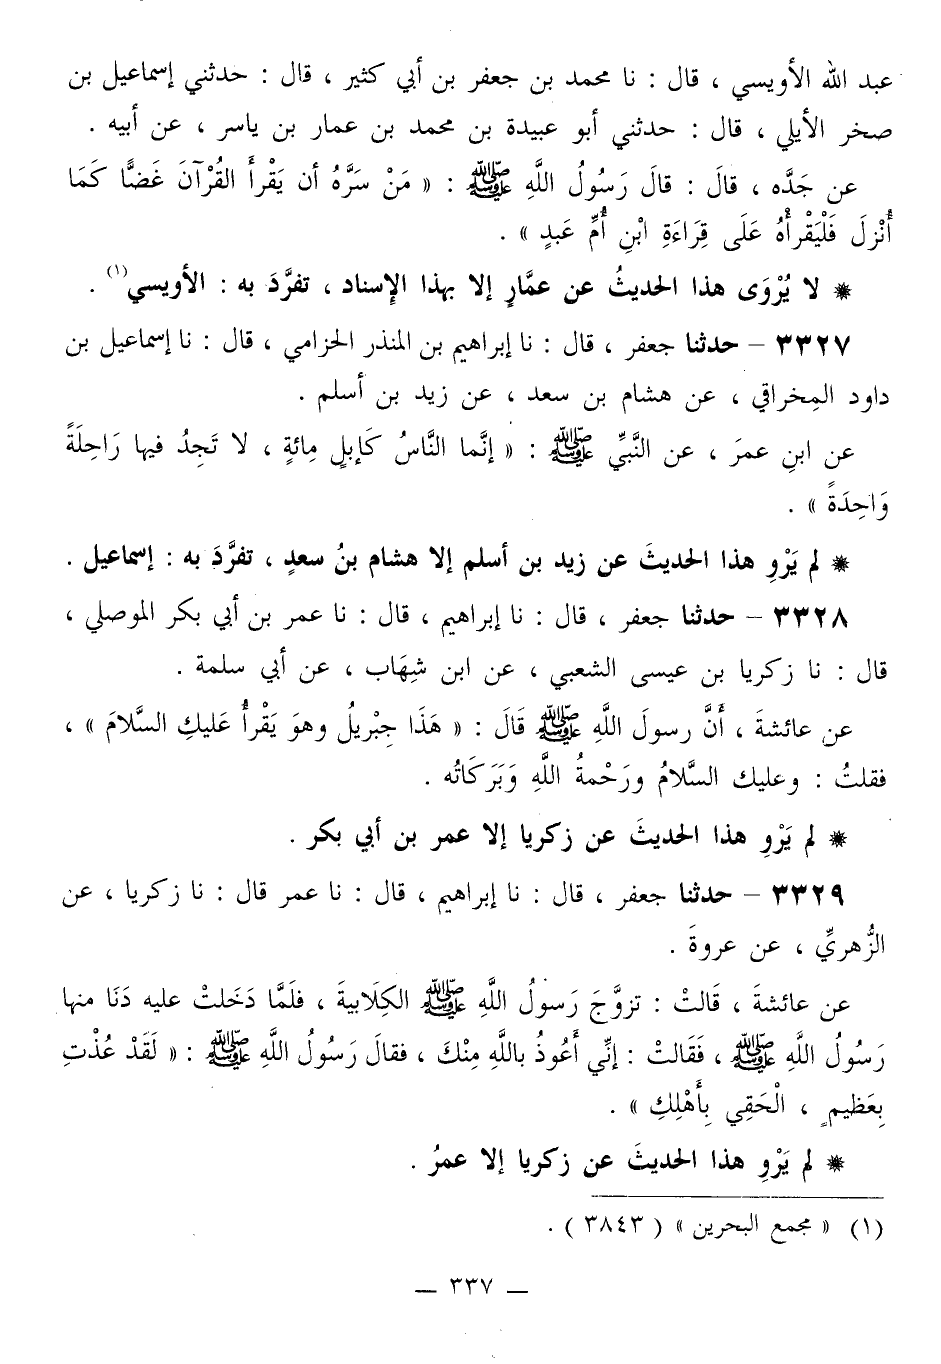 عبد الله الأويسي ، قال : نا محمد بن جعفر بن أبي كثير ، قال : حدثني إسماعيل بن
صخر الأيلي ، قال : حدثني أبو عبيدة بن محمد بن عمار بن ياسر ، عن أبيه .
عن جَدَّه ، قالَ : قالَ رَسُولُ اللَّهِ ﷺ : « مَنْ سَرَّهُ أن يَقْرأَ القُرْآنَ غَضًّا كَمَا
أُنْزلَ فَلْيَقْرأْهُ عَلَى قِرَاءَةِ ابْنِ أُمِّ عَبدٍ » .
❋ لا يُرْوَى هذا الحديثُ عن عمَّارٍ إلا بهذا الإِسناد ، تفرَّدَ به : الأويسي(١) .
٣٣٢٧ – حدثنا جعفر ، قال : نا إبراهيم بن المنذر الحزامي ، قال : نا إسماعيل بن
داود المِخراقي ، عن هشام بن سعد ، عن زيد بن أسلم .
عن ابنِ عمرَ ، عن النَّبيِّ ﷺ : « إنَّما النَّاسُ كَإبلٍ مِائةٍ ، لا تَجِدُ فيها رَاحِلَةً
وَاحِدَةً » .
❋ لم يَرْوِ هذا الحديثَ عن زيد بن أسلم إلا هشام بنُ سعدٍ ، تفرَّدَ به : إسماعيل .
٣٣٢٨ – حدثنا جعفر ، قال : نا إبراهيم ، قال : نا عمر بن أبي بكر الموصلي ،
قال : نا زكريا بن عيسى الشعبي ، عن ابن شِهَاب ، عن أبي سلمة .
عن عائشةَ ، أَنَّ رسولَ اللَّهِ ﷺ قَالَ : « هَذَا جِبْريلُ وهوَ يَقْرأُ عَليكِ السَّلامَ » ،
فقلتُ : وعليك السَّلامُ ورَحْمةُ اللَّهِ وَبَرَكَاتُه .
❋ لم يَرْوِ هذا الحديثَ عن زكريا إلا عمر بن أبي بكر .
٣٣٢٩ – حدثنا جعفر ، قال : نا إبراهيم ، قال : نا عمر قال : نا زكريا ، عن
الزُّهريِّ ، عن عروةَ .
عن عائشةَ ، قَالتْ : تزوَّجَ رَسولُ اللَّهِ ﷺ الكِلَابيةَ ، فلَمَّا دَخَلتْ عليه دَنَا منها
رَسُولُ اللَّهِ ﷺ ، فَقَالتْ : إنِّي أَعُوذُ باللَّهِ مِنْكَ ، فقالَ رَسُولُ اللَّهِ ﷺ : « لَقَدْ عُذْتِ
بِعَظيمٍ ، الْحَقِي بِأَهْلِكِ » .
❋ لم يَرْوِ هذا الحديثَ عن زكريا إلا عمرُ .
(١) « مجمع البحرين » ( ٣٨٤٣ ) .
— ٣٣٧ —